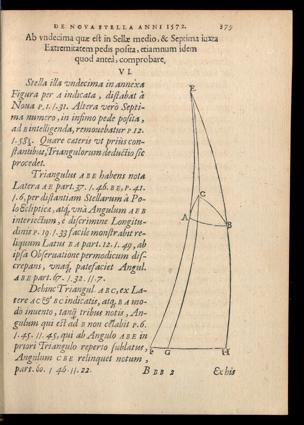 DE NOVA STELLA ANNI 1572. 379
Ab vndecima quæ est in Sellæ medio, & Septima iuxta
Extremitatem pedis posita, etiamnum idem
quod anteà, comprobare,
V I.
Stella illa vndecima in annexa
Figura per A indicata, distabat à
Noua P. 1. /. 31. Altera verò Septi-
ma numero, in infimo pede posita,
ad B intelligenda, remouebatur P 12.
Quare cæteris vt priùs con-
stantibus, Triangulorum deductio sic
procedet.
Triangulus A B E habens nota
Latera A E part. 37. /. 46. B E, P. 41.
/. 6, per distantiam Stellarum à Po-
lo Eclipticæ, atq, vnà Angulum A E B
interiectum, è discrimine Longitu-
dinis P. 19. /. 33 facile monstrabit re-
liquum Latus B A part. 12. /. 49, ab
ipsa Obseruatione permodicum dis-
crepans, vnaq, patefaciet Angul.
A B E part. 67. /. 32. //. 7.
Dehinc Triangul. A B C, ex La-
tere A C & B C indicatis, atq, B A mo-
dò inuento, tanq, tribus notis, An-
gulum qui est ad B non celabit P. 6.
/. 45. //. 45, qui ab Angulo A B E in
priori Triangulo reperto sublatus,
Angulum C B E relinquet notum,
part. 60. / 46. //. 22.
E
C
A
B
F G H
B b b 2 Ex his